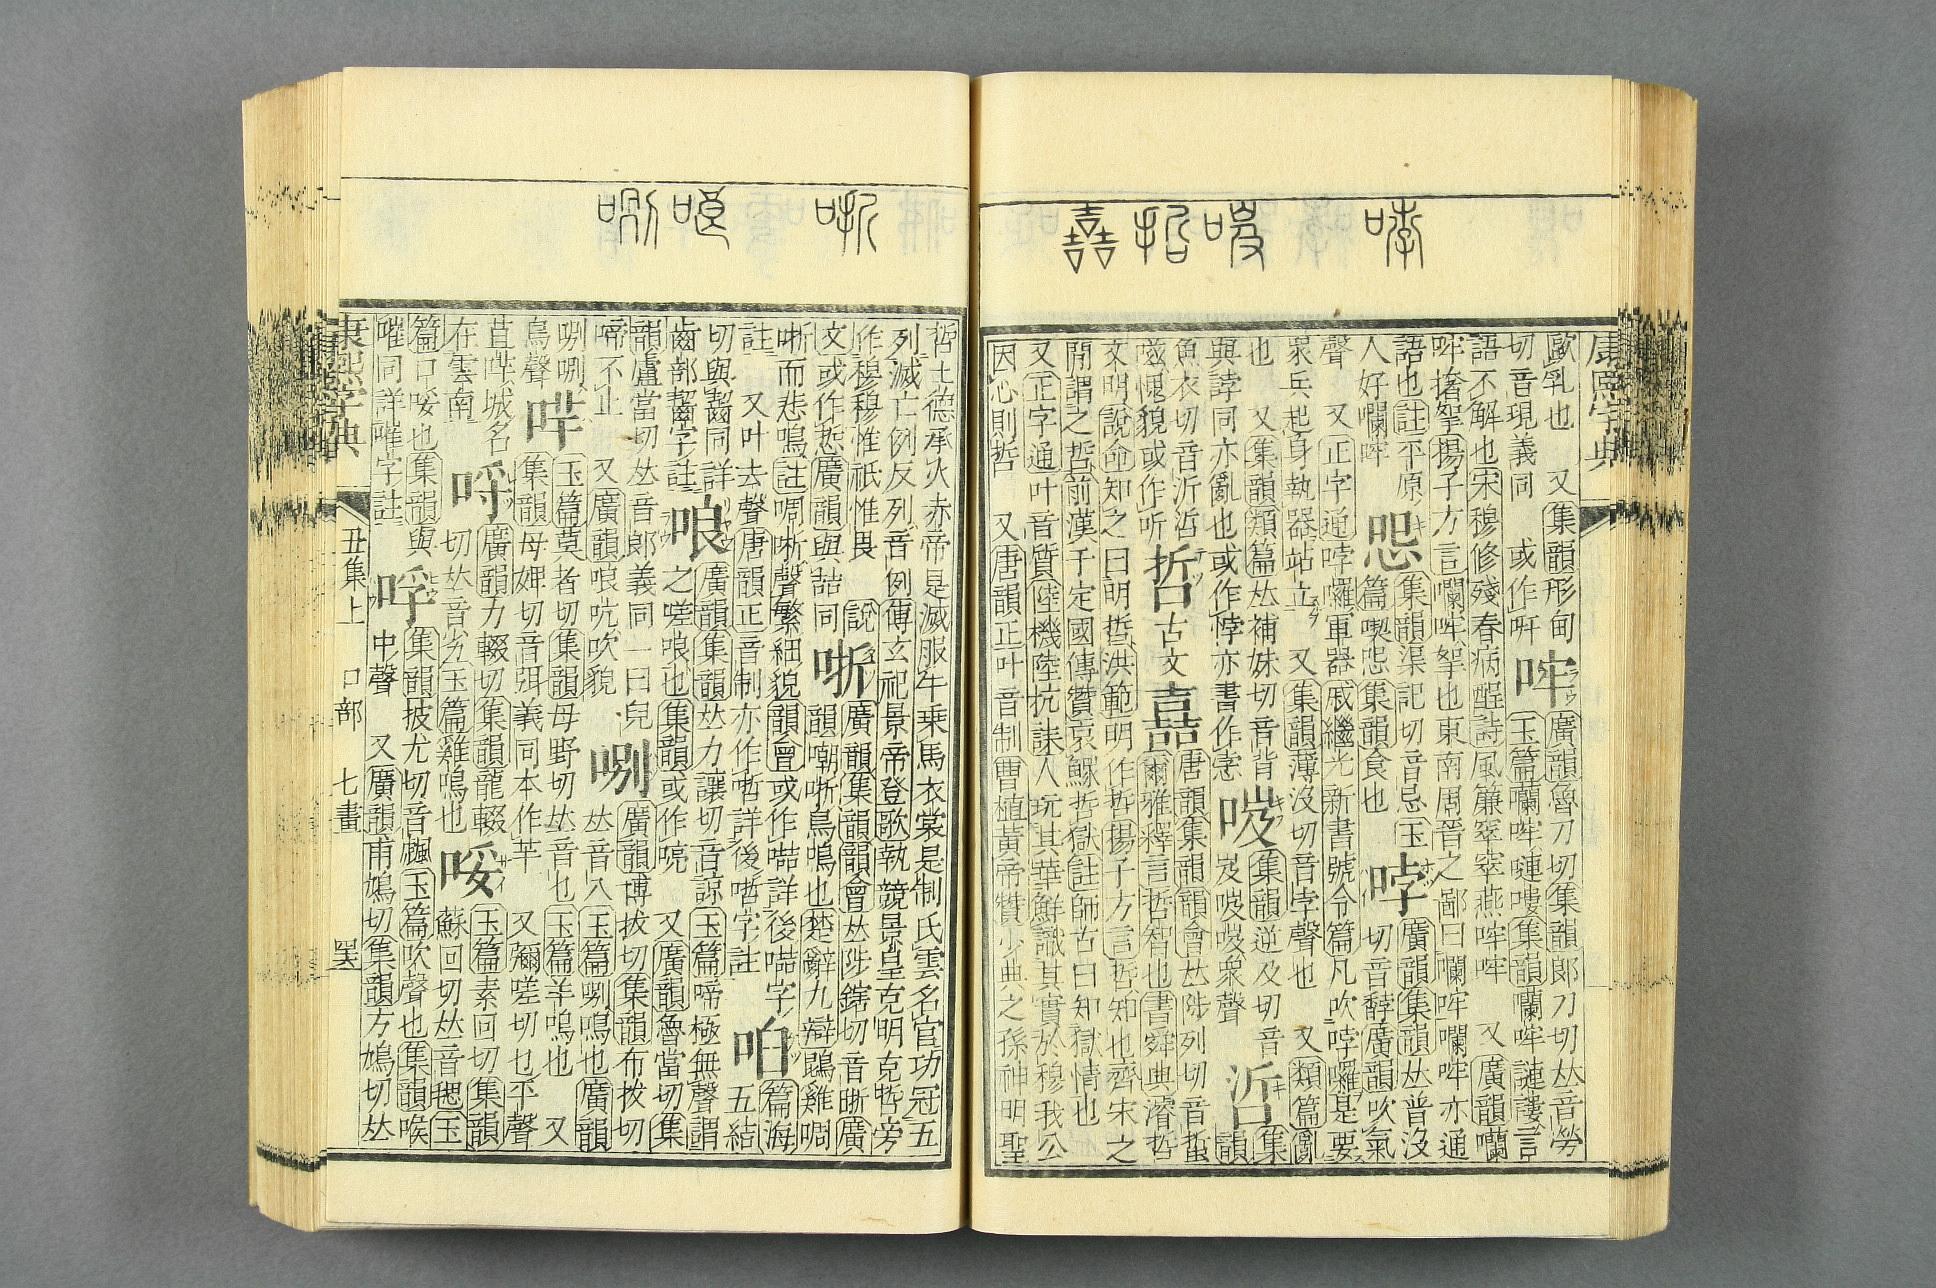 哱
㗱
哲
嚞
康熙字典
歐乳也　又集韻形甸
切音現義同　或作㖔
哰
廣韻魯刀切集韻郎刀切𠀤音勞
玉篇囒哰嗹嘍集韻囒哰謰謱言
語不解也宋穆修殘春病酲詩風簾窣窣燕哰哰　又廣韻囒
哰撦挐揚子方言囒哰挐也東南周晉之鄙曰囒哰囒哰亦通
語也註平原
人好囒哰
集韻渠記切音忌玉
篇喫集韻食也
哱
廣韻集韻𠀤普沒
切音馞廣韻吹氣
聲　又正字通哱囉軍器戚繼光新書號令篇凡吹哱囉是要
衆兵起身執器站立　又集韻薄沒切音孛聲也　又類篇亂
也　又集韻類篇𠀤補妹切音背
與誖同亦亂也或作悖亦書作
㗱
集韻逆及切音
岌㗱㗱衆聲
集
韻
魚衣切音沂
愧貌或作听
哲
古文
嚞
唐韻集韻韻會𠀤陟列切音蜇
爾雅釋言哲智也書舜典濬哲
文明說命知之曰明哲洪範明作哲揚子方言哲知也齊宋之
閒謂之哲前漢于定國傳贊哀鰥哲獄註師古曰知獄情也
又正字通叶音質陸機陸抗誄人玩其華鮮識其實於穆我公
因心則哲　又唐韻正叶音制曹植黃帝贊少典之孫神明聖
哳
哴
唎
哲土德承火赤帝是滅服牛乘馬衣裳是制氏雲名官功冠五
列滅亡例反列音例傅玄祀景帝登歌執競景皇克明克哲旁
作穆穆惟祇惟畏　說
文或作悊廣韻與喆同
哳
廣韻集韻韻會𠀤陟鎋切音㫼廣
韻嘲哳鳥鳴也楚辭九辯鵾雞啁
哳而悲鳴註啁哳聲繁細貌韻會或作㗿詳後㗿字
註　又叶去聲唐韻正音制亦作詳後字註
篇海
五結
切與齧同詳
齒部齧字註
哴
廣韻集韻𠀤力讓切音諒玉篇啼極無聲謂
之嗟哴也集韻或作喨　又廣韻魯當切集
韻盧當切𠀤音郎義同一曰兒
啼不止　又廣韻哴吭吹貌
哵
廣韻博拔切集韻布拔切
𠀤音八玉篇哵鳴也廣韻
哵哵
鳥聲
哶
玉篇莫者切集韻母野切𠀤音乜玉篇羊鳴也　又
集韻母婢切音弭義同本作芈　又彌嗟切乜平聲
苴哶城名
在雲南
哷
廣韻力輟切集韻龍輟
切𠀤音劣玉篇雞鳴也
哸
玉篇素回切集韻
蘇回切𠀤音毸玉
篇口哸也集韻與
嗺同詳嗺字註
哹
集韻披尤切音䬌玉篇吹聲也集韻喉
中聲　又廣韻甫鳩切集韻方鳩切𠀤
康熙字典　丑集上　口部　七畫